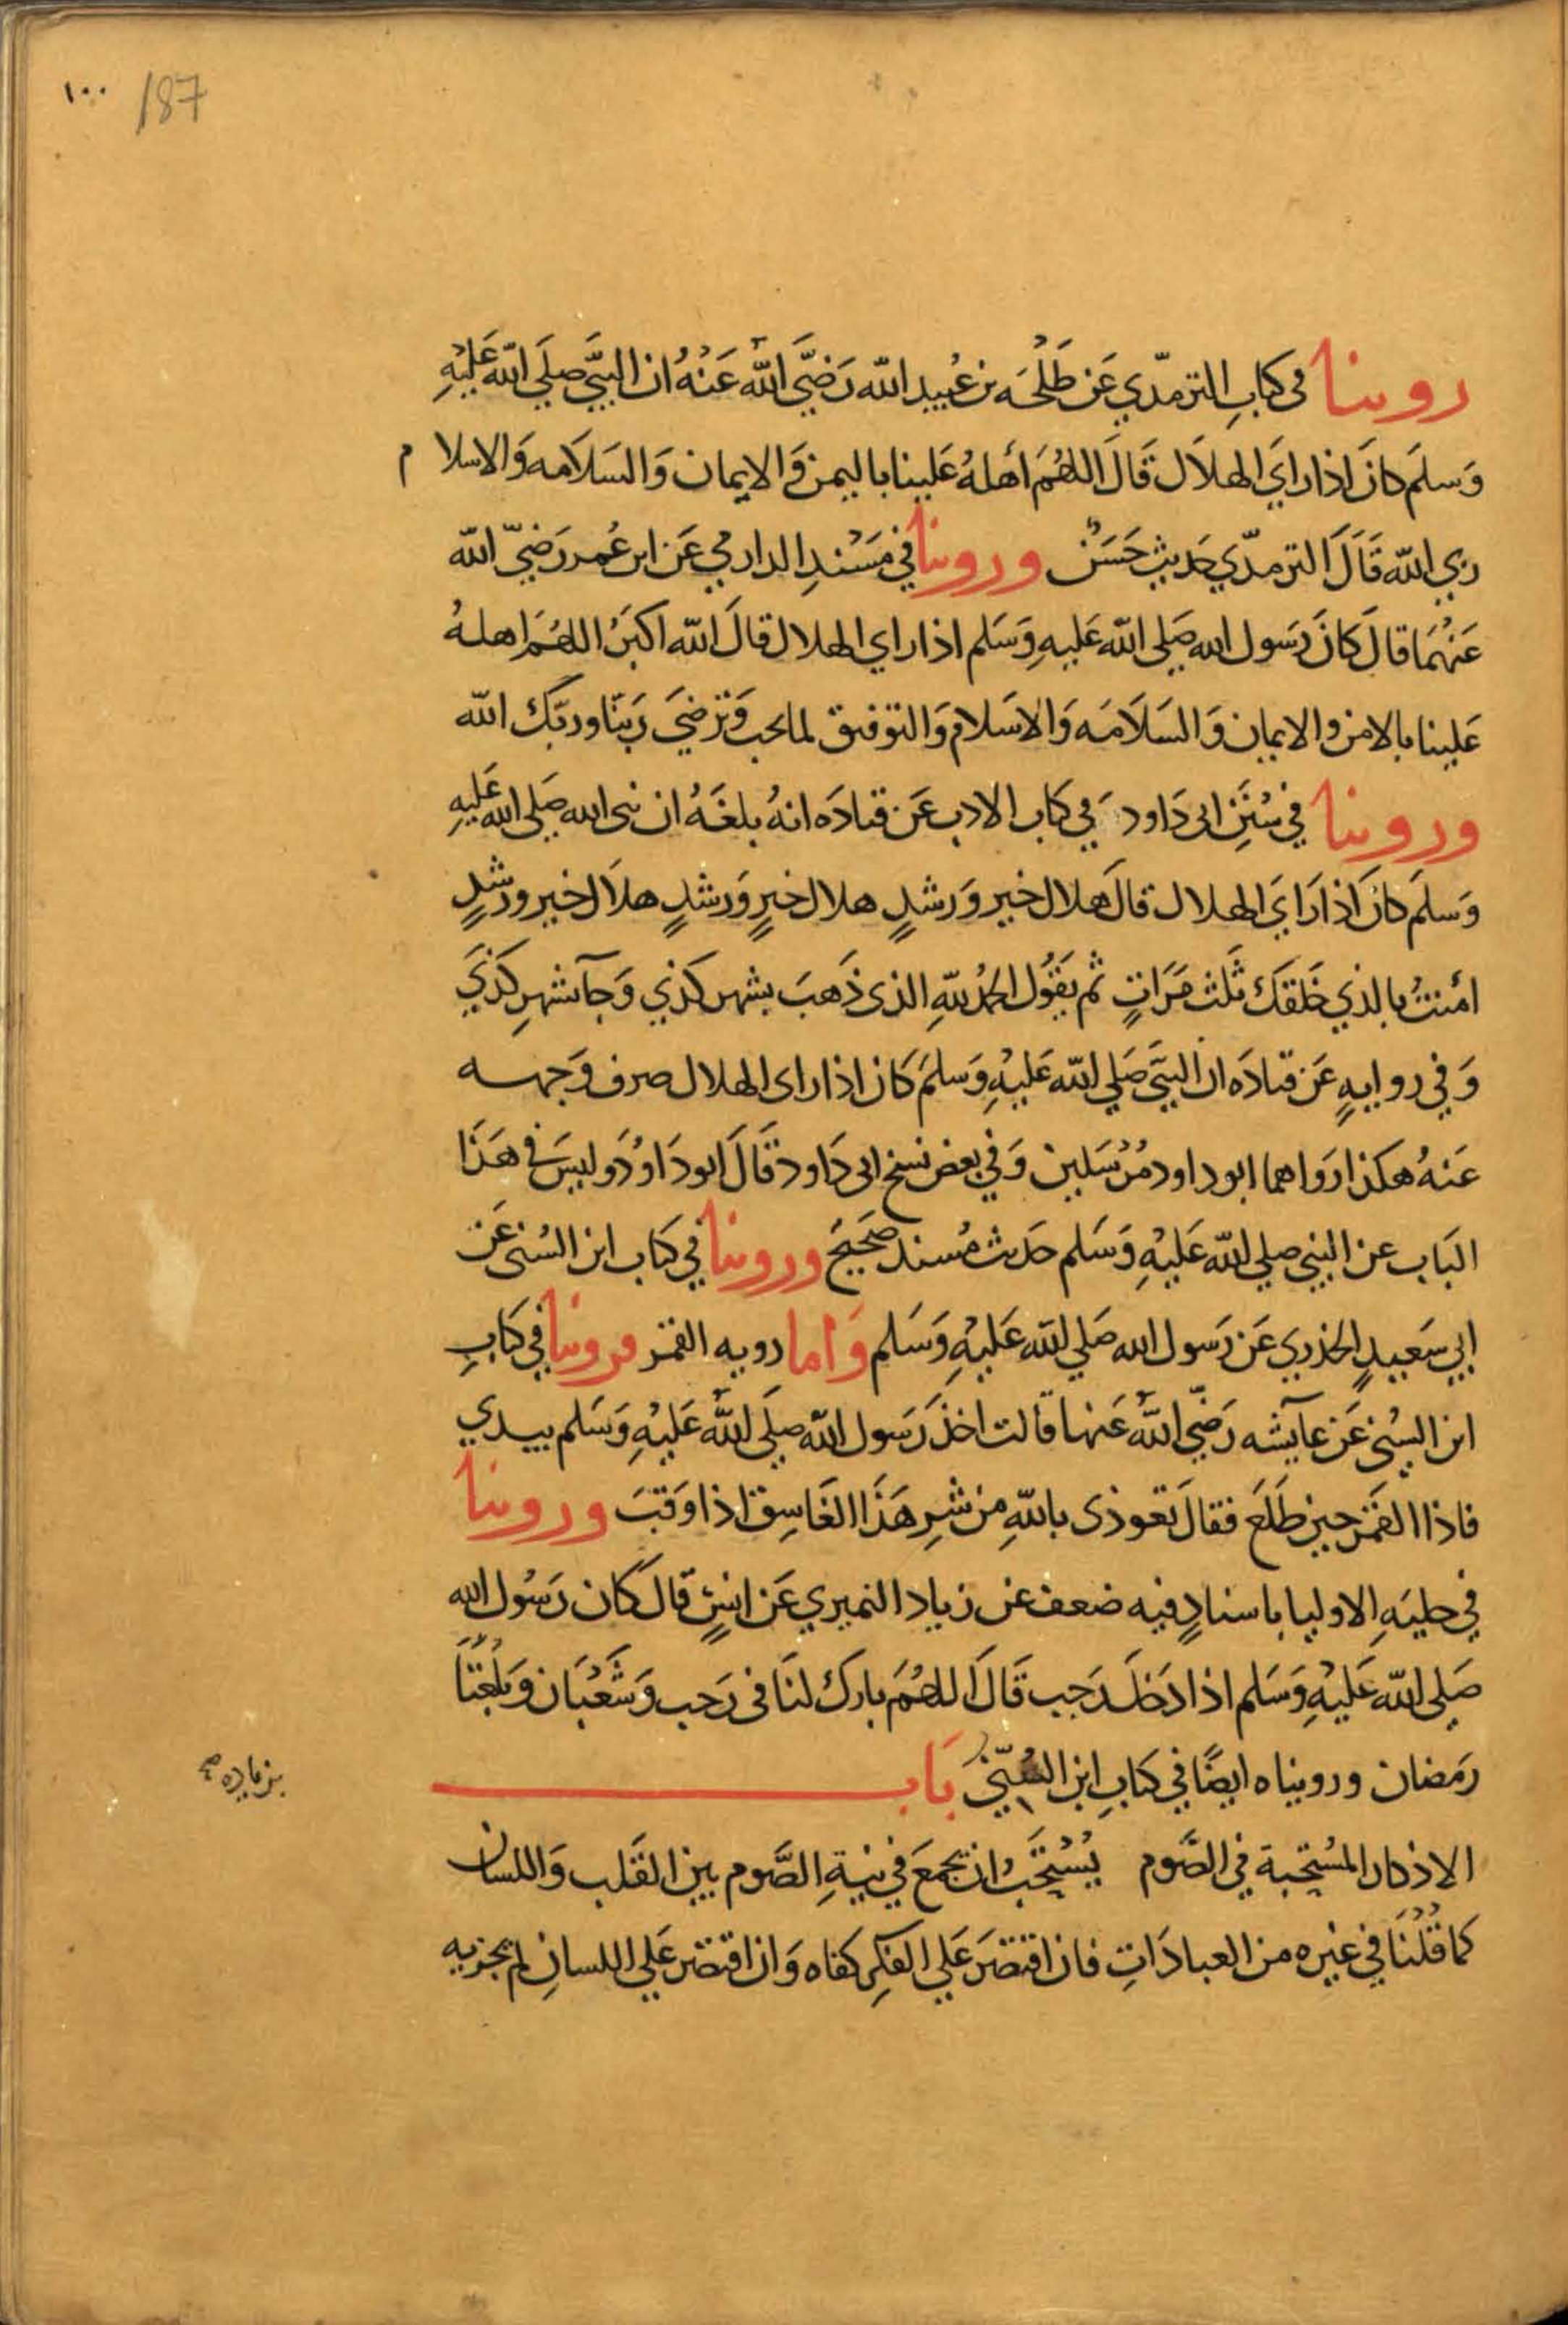 ١٠٠ 187
روينا في كتابِ الترمذي عَن طَلْحَه بن عُبيد الله رَضيَ اللهُ عَنْهُ ان النبيَّ صلَي الله عَليْهِ
وَسلمَ كانَ اذا راي الهلاَل قَالَ اللهُمَ أهلهُ عَلينا باليمن وَالايمان وَالسَلاَمه وَالاسلام
ربي الله قَالَ الترمذي حَديثٌ حَسَنٌ وروينا في مسْندِ الدارمي عَن ابن عُمر رَضيَ الله
عَنْهُمَا قالَ كانَ رَسَول الله صَلى الله عَليهِ وَسَلم اذا راي الهلال قالَ الله اكبَرُ اللهُمَ اهلهُ
عَلينا بالامن والايمان وَالسَلاَمَه وَالاسَلام وَالتوفيق لما تحب وَترضيَ رَبنَا وربَك الله
وروينا في سُنَنِ ابى دَاود في كتَاب الادب عَن قتادَه انهُ بلغَهُ ان نبى الله صَلى الله عَليهِ
وَسلمَ كانَ اذا رَايَ الهلال قالَ هلال خير وَرشدٍ هلال خيرٍ وَرشدٍ هلاَل خير ورشدٍ
امنتُ بالذي خَلقكَ ثلث مَرَاتٍ ثم يَقُول الحمْدُ للهِ الذى ذَهبَ بشهر كذي وَجآ بشهرِ كذي
وَفي روايهٍ عَن قتادَه ان النبيَّ صَلي الله عَليْهِ وَسلمَ كان اذا راى الهلال صرف وَجهه
عَنهُ هكذا رَواهما ابو داود مُرْسَلين وَفي بعض نسخ ابى دَاود قَالَ ابو دَاوُدَ وليسَ في هَذَا
البَاب عن النبي صلي الله عَليْهِ وَسَلم حَديث مُسند صَحيحَ وروينا في كتَاب ابن السُنى عَن
ابي سَعيدٍ الخدري عَن رَسول الله صَلي الله عَليْهِ وَسَلم وَاما رويه القمَر فروينا في كتَابِ
ابن السُني عَن عآيشه رَضيَ اللهُ عَنها قَالت اخذ رَسَول الله صلَي الله عَليْهِ وَسَلم بيدي
فاذا القمَر حين طلَعَ فقالَ تعوذى باللهِ من شرِ هَذَا الغَاسِق اذا وَقبَ وروينا
في حليَهِ الاوليا باسنادٍ فيه ضعف عن زياد النميري عَن انسٍ قالَ كَان رَسُول الله
صَلى الله عَليْهِ وَسَلم اذا دَخلَ رَجب قَالَ اللهُمَ بارك لنَا فى رَجب وَشَعْبَان وَبلغْنَا
رمَضان ورويناه ايضًا في كتَابِ ابن السُنّي بَاب
بزياده
الاذكار المسُتحبة في الصَّوم يُسْتحَبُ ان يجمَعَ في نيةِ الصَّوم بين القَلب وَاللسان
كما قُلْنَا في غيره من العبادَاتِ فان اقتصَرَ عَلي الفكِر كفاه وَان اقتصَر عَلي اللسانِ لم يجزيه